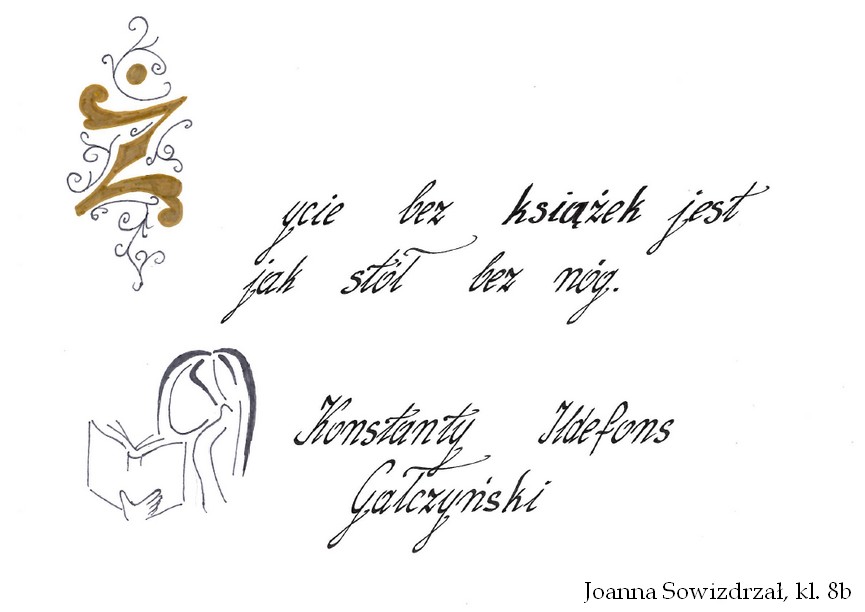 Życie bez książek jest
jak stół bez nóg.
Konstanty Ildefons
Gałczyński
Joanna Sowizdrzał, kl. 8b